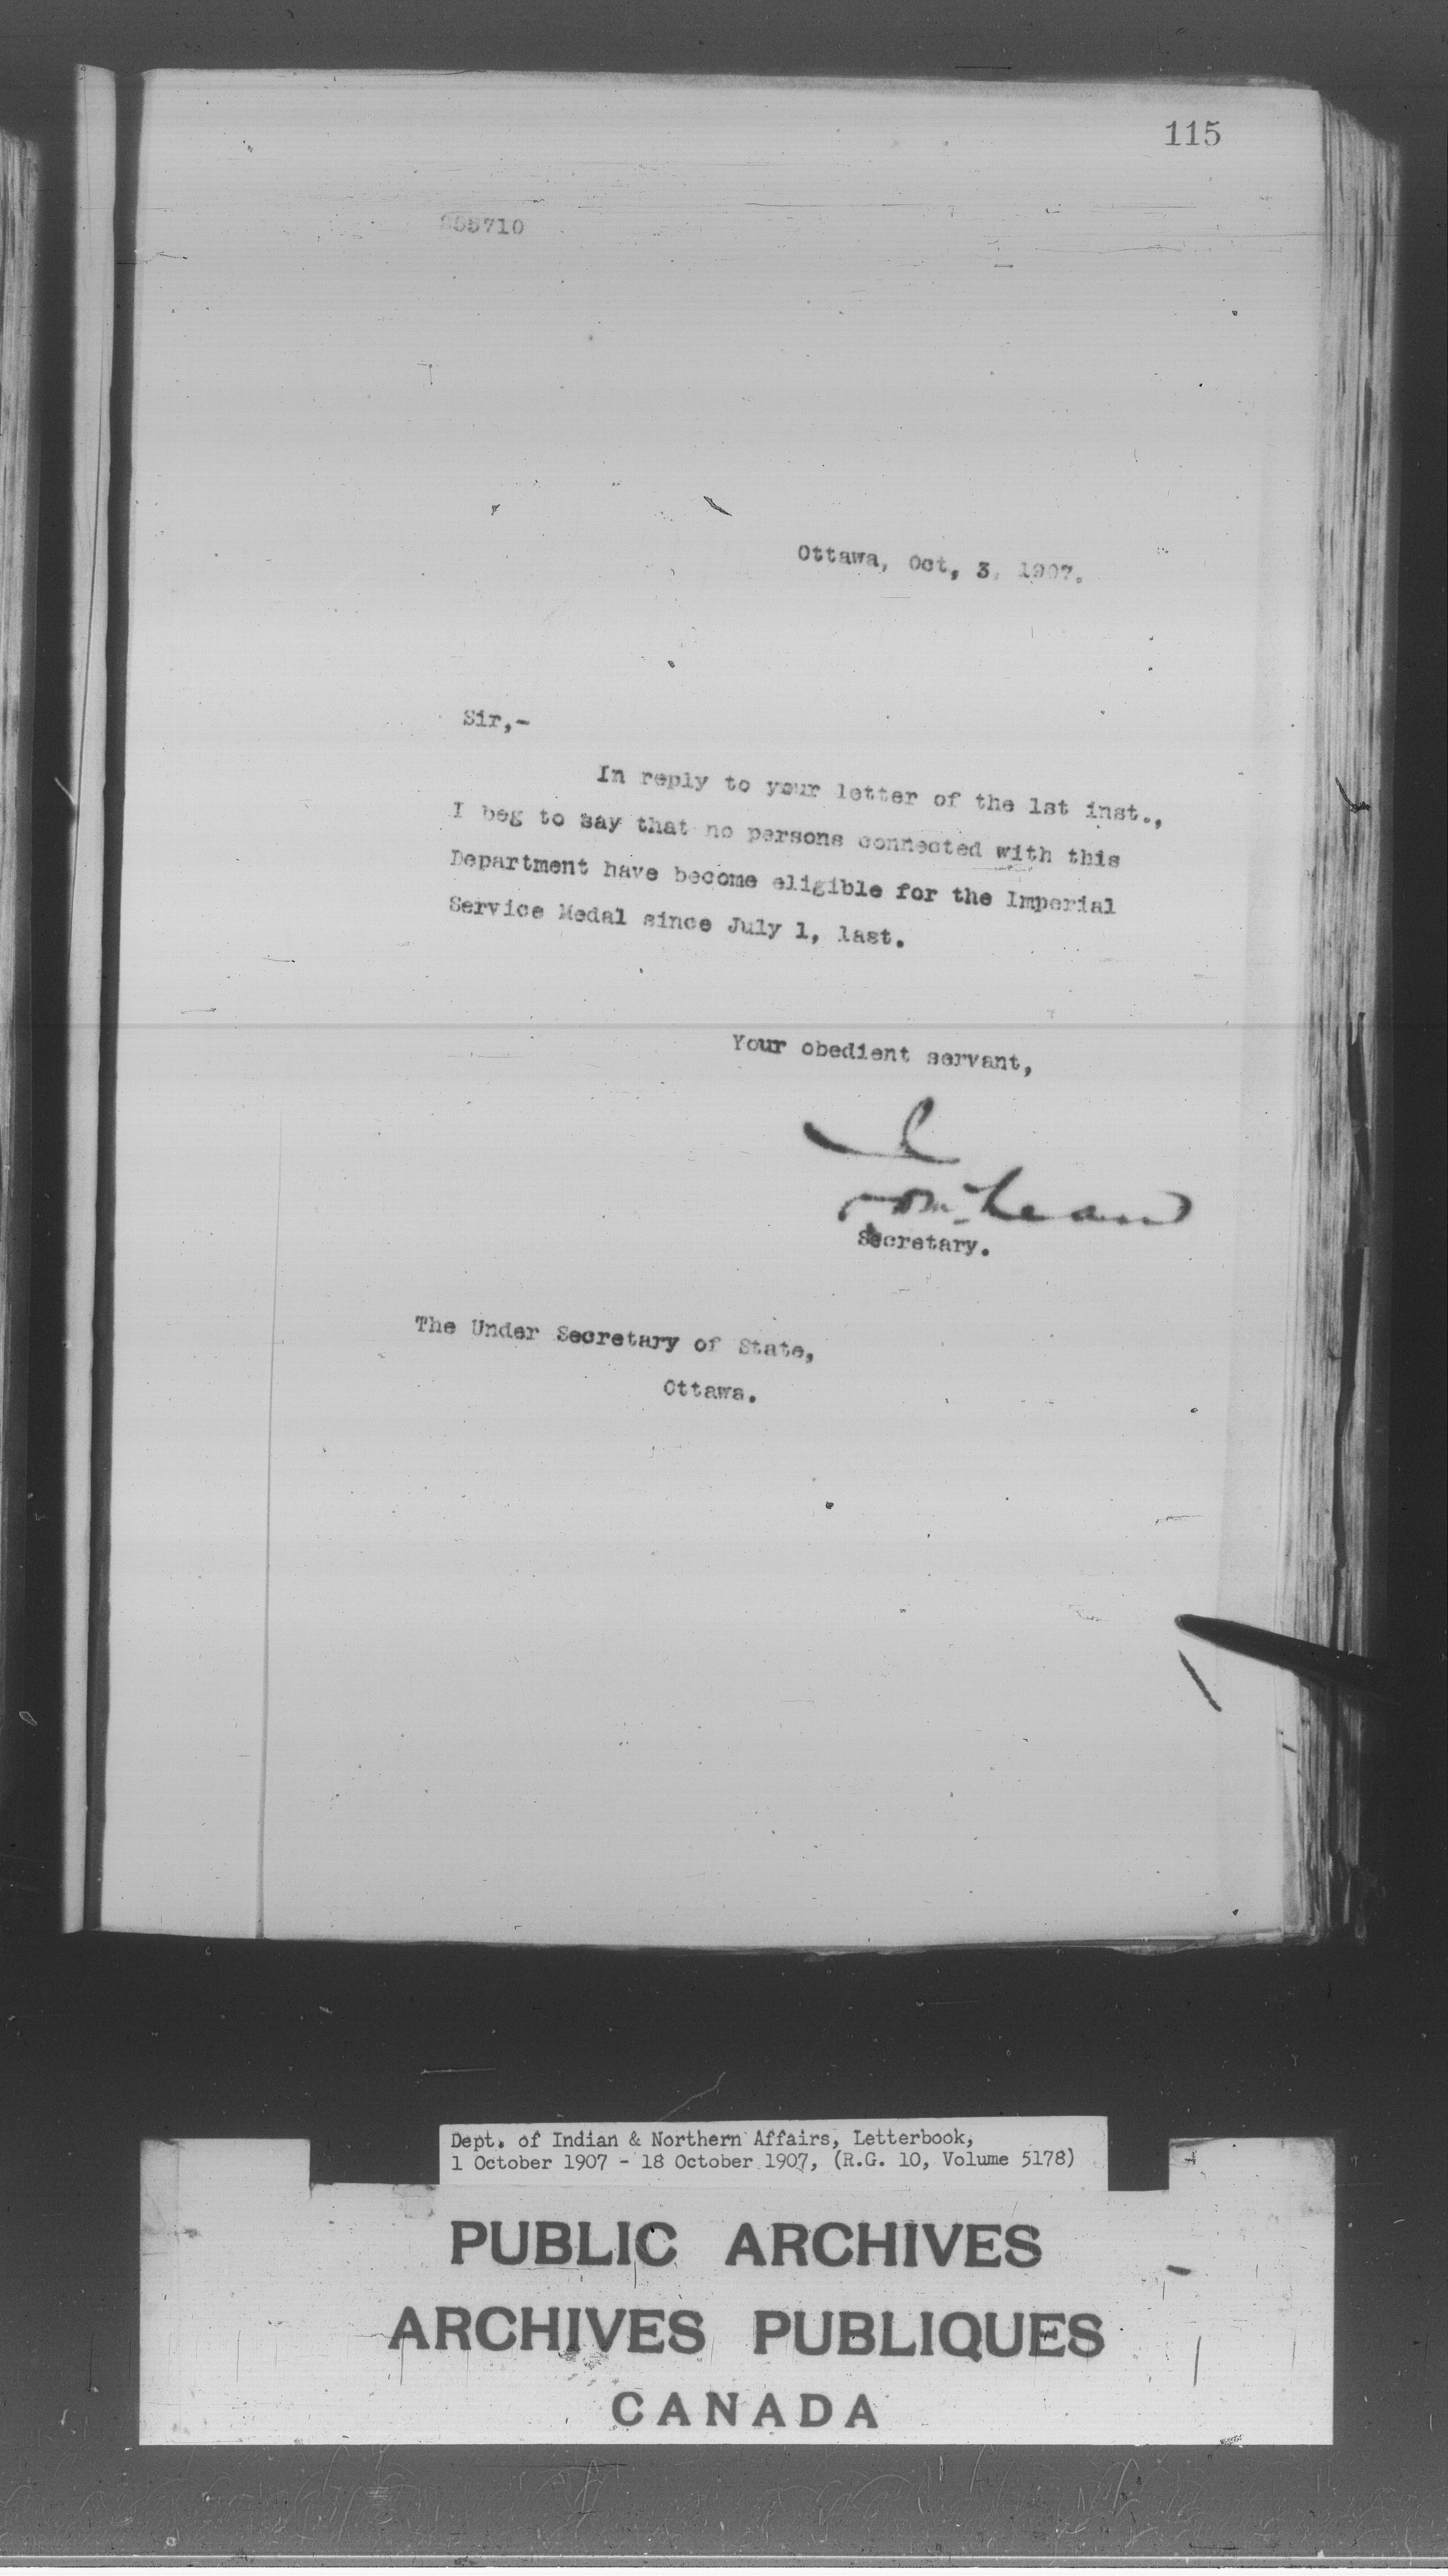 115
255710
Ottawa, Oct, 3, 1907.
Sir,-
In reply to your letter of the 1st inst.,
I beg to say that no persons connected with this
Department have become eligible for the Imperial
Service Medal since July 1, last.
Your obedient servant,
McLean
Secretary.
The Under Secretary of State,
Ottawa.
Dept. of Indian & Northern Affairs, Letterbook,
1 October 1907 - 18 October 1907, (R.G. 10, Volume 5178)
PUBLIC ARCHIVES
ARCHIVES PUBLIQUES
CANADA